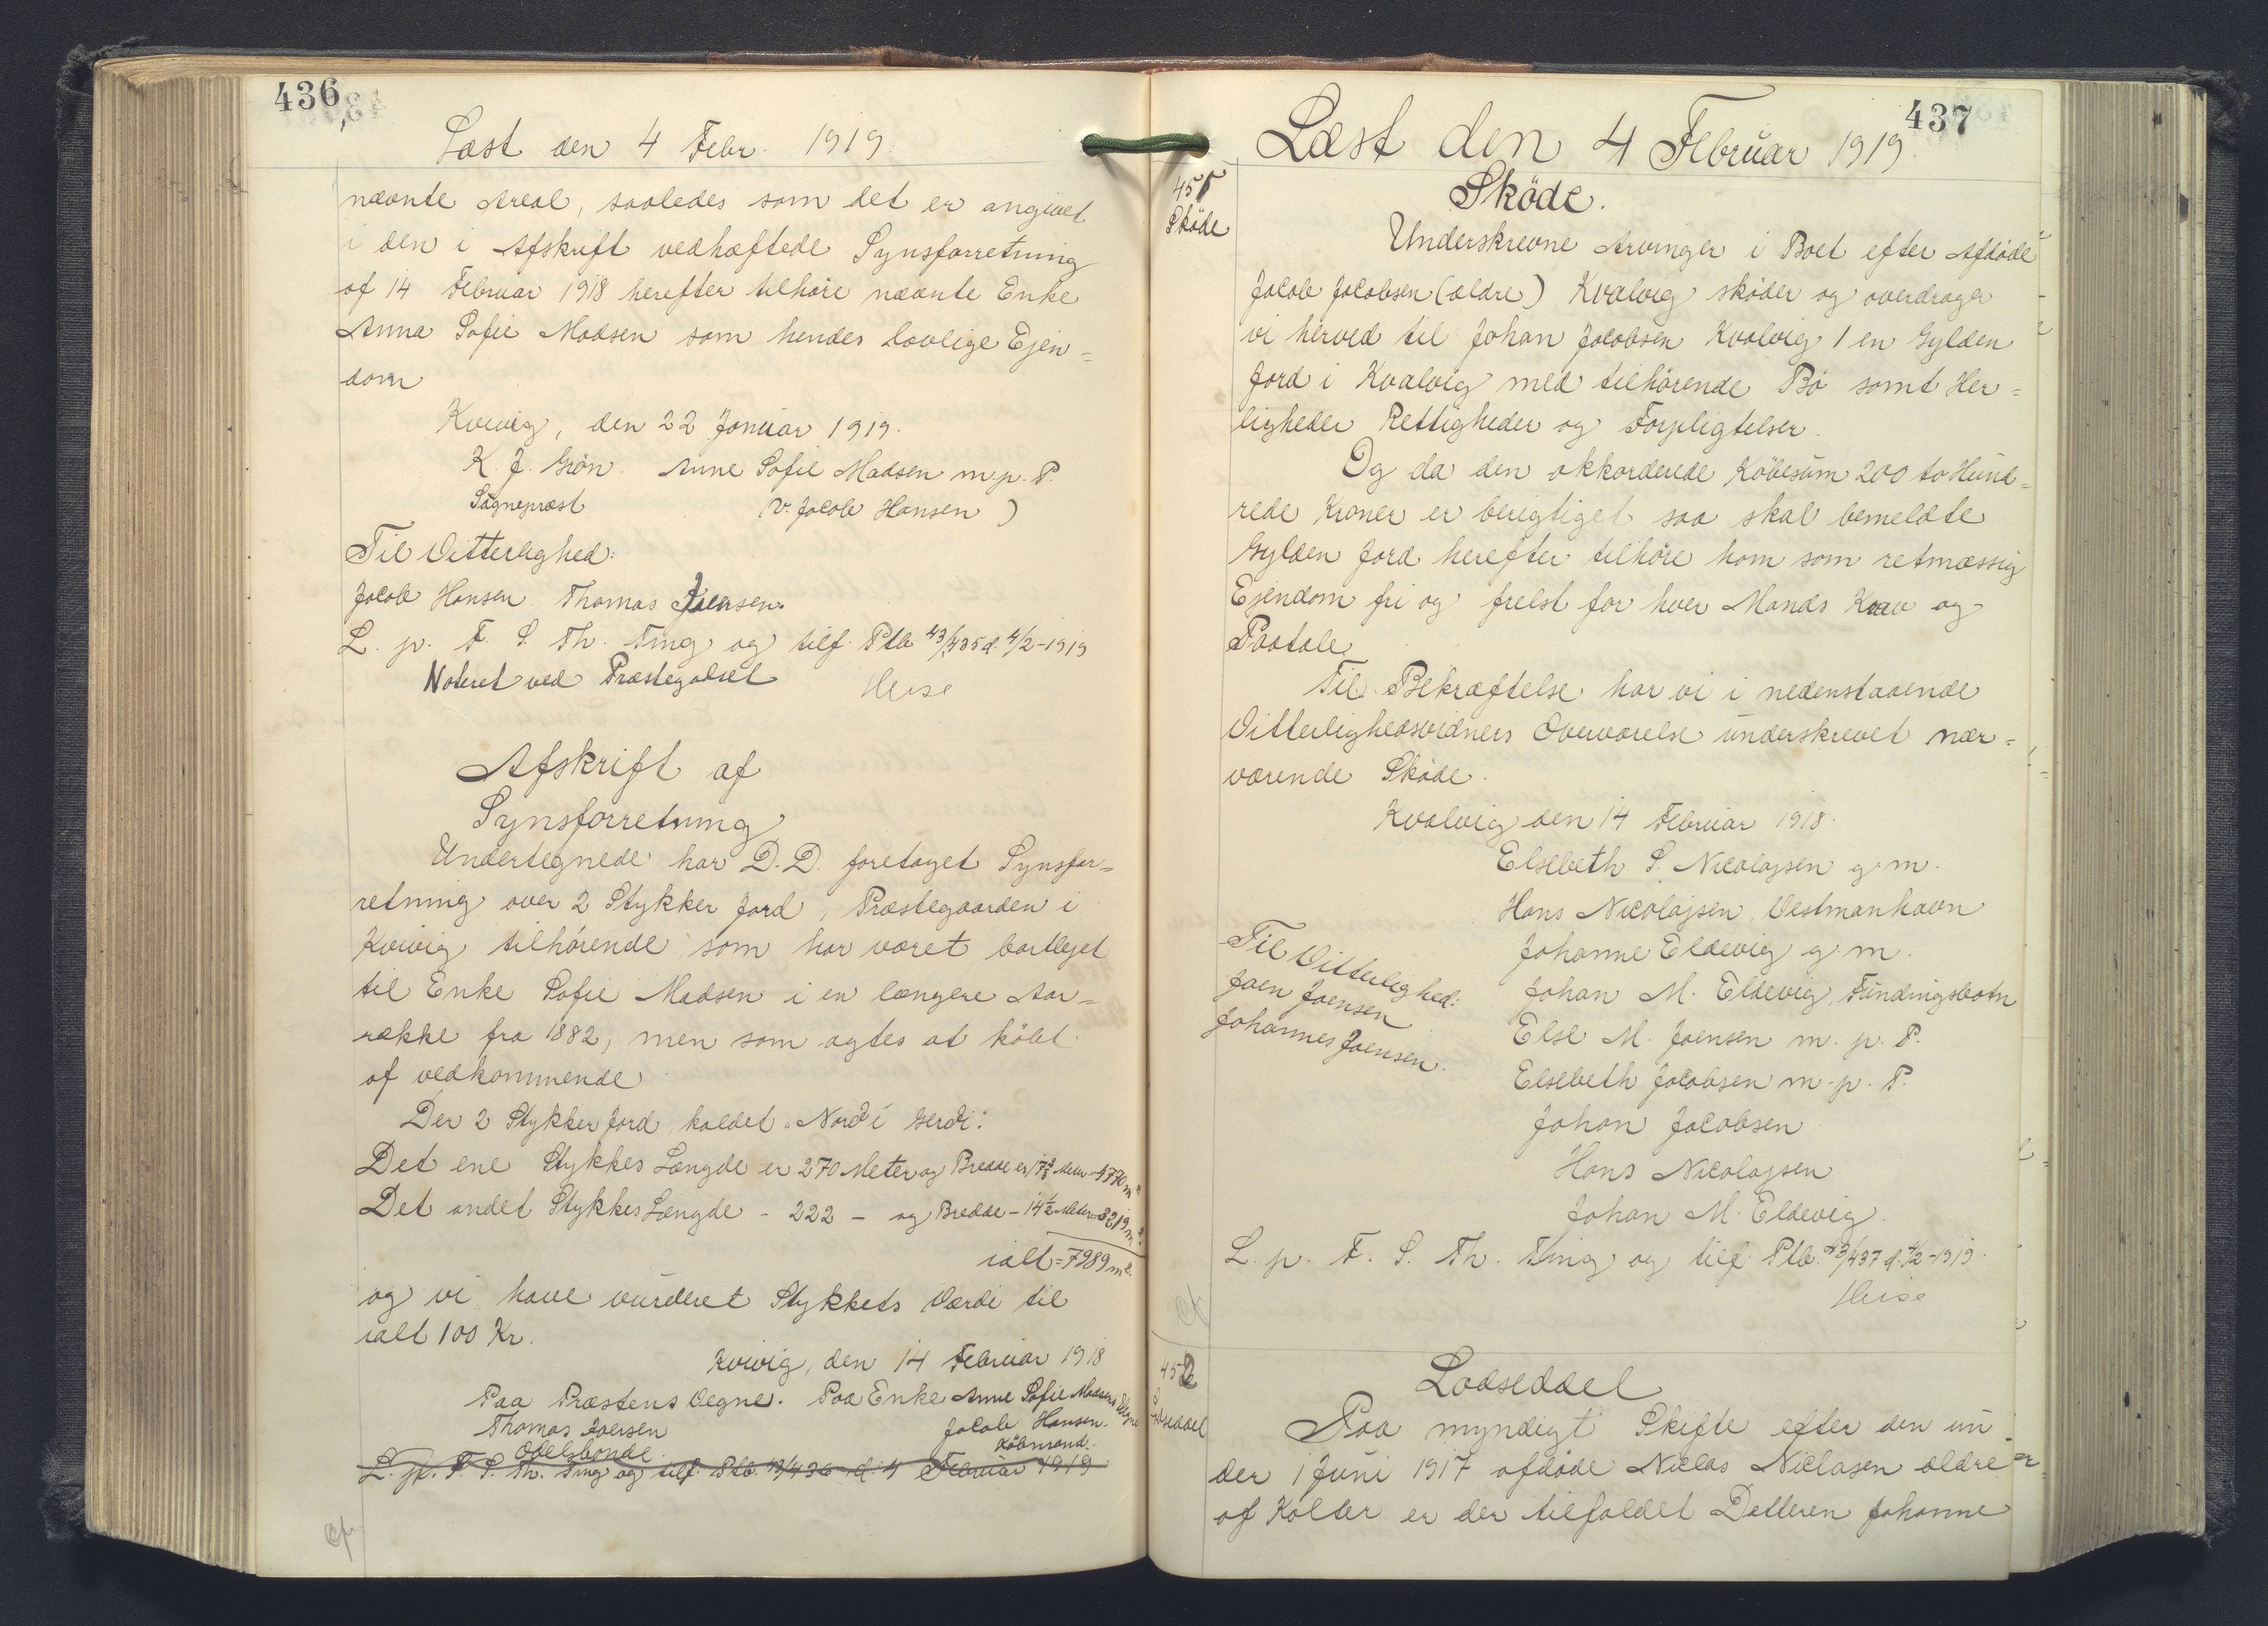 436
Læst den 4 Febr. 1919.
nævnte Areal, saaledes som det er angivet
i den i Afskrift vedhæftede Synsforretning
af 14 Februar 1918 herefter tilhøre nævnte Enke
Anna Sofie Madsen som hendes lovlige Ejen=
dom
Kvivig, den 22 Januar 1919.
K. J. Grön. Anne Sofie Madsen m. p. P.
Sognepræst (v. Jacob Hansen)
Til Vitterlighed:
Jacob Hansen Thomas Joensen.
L. p. F. S. Th. Ting og tilf. Ptb 43/435 d. 4/2-1919
Noteret ved Præstegodset Heise
Afskrift af
Synsforretning
Undertegnede har D.D. foretaget Synsfor=
retning over 2 Stykker Jord, Præstegaarden i
Kvivig tilhørende som har været bortlejet
til Enke Sofie Madsen i en længere Aar=
række fra 1882, men som agtes at købt
af vedkommende
Der 2 Stykker Jord kaldet "Nordi Gerdi:
Det ene Stykkes Længde er 270 Meter og Bredde er 17⅔ Meter=4770 m².
Det andet Stykkes Længde - 222 - og Bredde - 14½ Meter=3219 m².
ialt=7989 m².
og vi have vurderet Stykkets Værdi til
ialt 100 Kr.
Kvivig, den 14 Februar 1918
Paa Præstens Vegne. Paa Enke Anne Sofie Madsens Vegne
Thomas Joensen Jacob Hansen.
Odelsbonde. Købmand.
L. p. F. S. Th. Ting og tilf. Ptb. 43/436 d. 4 Februar 1919
437
Læst den 4 Februar 1919.
451
Sköde
Sköde.
Underskrevne Arvinger i Boet efter Afdöde
Jacob Jacobsen (ældre) Kvalvig sköder og overdrager
vi herved til Johan Jacobsen Kvalvig 1 en Gylden
Jord i Kvalvig med tilhörende Bö samt Her=
ligheder Rettigheder og Forpligtelser.
Og da den akkorderede Köbesum 200 to Hund=
rede Kroner er berigtiget saa skal bemeldte
Gylden Jord herefter tilhöre ham som retmæssig
Ejendom fri og frelst for hver Mands Krav og
Paatale
Til Bekræftelse har vi i nedenstaaende
Vitterlighedsvidners Overværelse underskrevet nær=
værende Sköde.
Kvalvig den 14 Februar 1918.
Elsebeth S. Nicolajsen g. m.
Hans Nicolajsen Vestmanhavn
Johanne Eldevig g. m.
Til Vitterlighed:
Johan M. Eldevig, Fundingsbotn
Joen Joensen
Else M. Joensen m. p. P.
Johannes Joensen.
Elsebeth Jacobsen m. p. P.
Johan Jacobsen
Hans Nicolajsen
Johan M. Eldevig.
L. p. F. S. Th. Ting og tilf. Ptb. 43/437 d. 4/2-1919.
Heise
452
Lodseddel
Lodseddel
Paa myndigt Skifte efter den un=
der 1 Juni 1917 afdöde Niclas Niclasen ældre
af Kolter er der tilfaldet Datteren Johanne